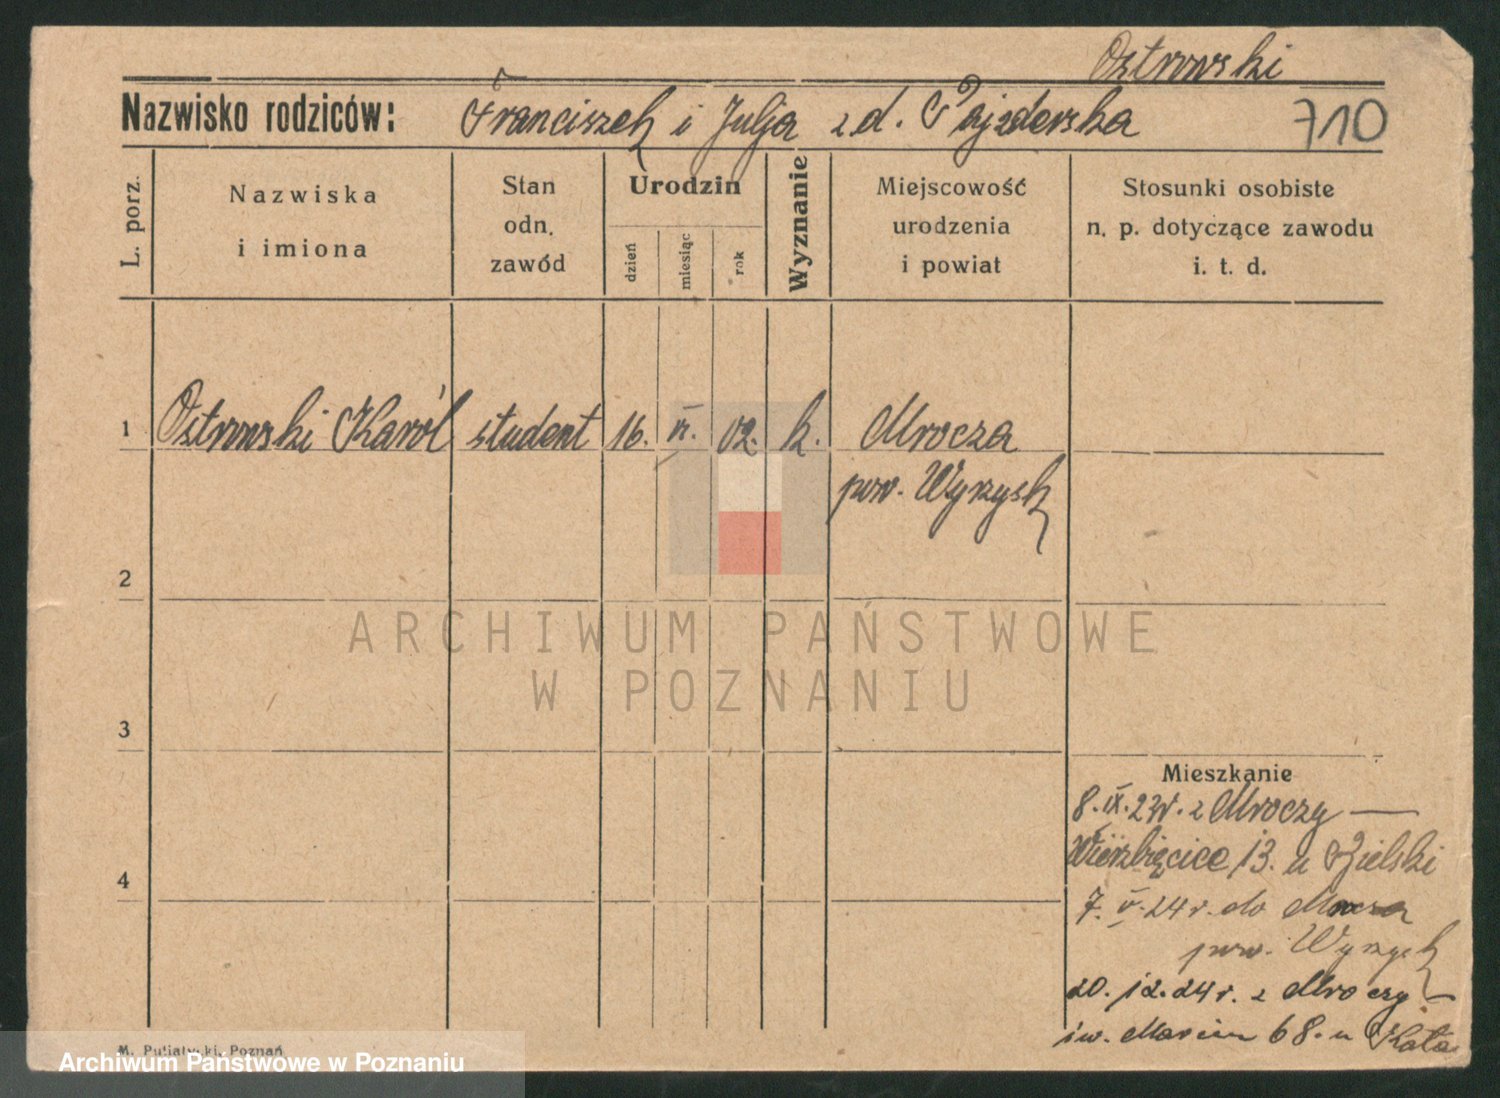 Ostrowski
Nazwisko rodziców: Franciszek i Julja z d. Pajzderska 710
L. porz.
Nazwiska
i imiona
Stan
odn.
zawód
Urodzin
dzień
miesiąc
rok
Wyznanie
Miejscowość
urodzenia
i powiat
Stosunki osobiste
n. p. dotyczące zawodu
i. t. d.
1 Ostrowski Karól student 16. VI. 02. k. Mrocza
pow. Wyrzysk
2
3
4
ARCHIWUM PAŃSTWOWE
W POZNANIU
Mieszkanie
8. IX. 23r. z Mroczy —
Wierzbięcice 13. u Bielski
7. V. 24 r. do Mrocza
pow. Wyrzysk
20. 12. 24 r. z Mroczy —
św. Marcin 68. u
M. Putiatycki, Poznań
Archiwum Państwowe w Poznaniu